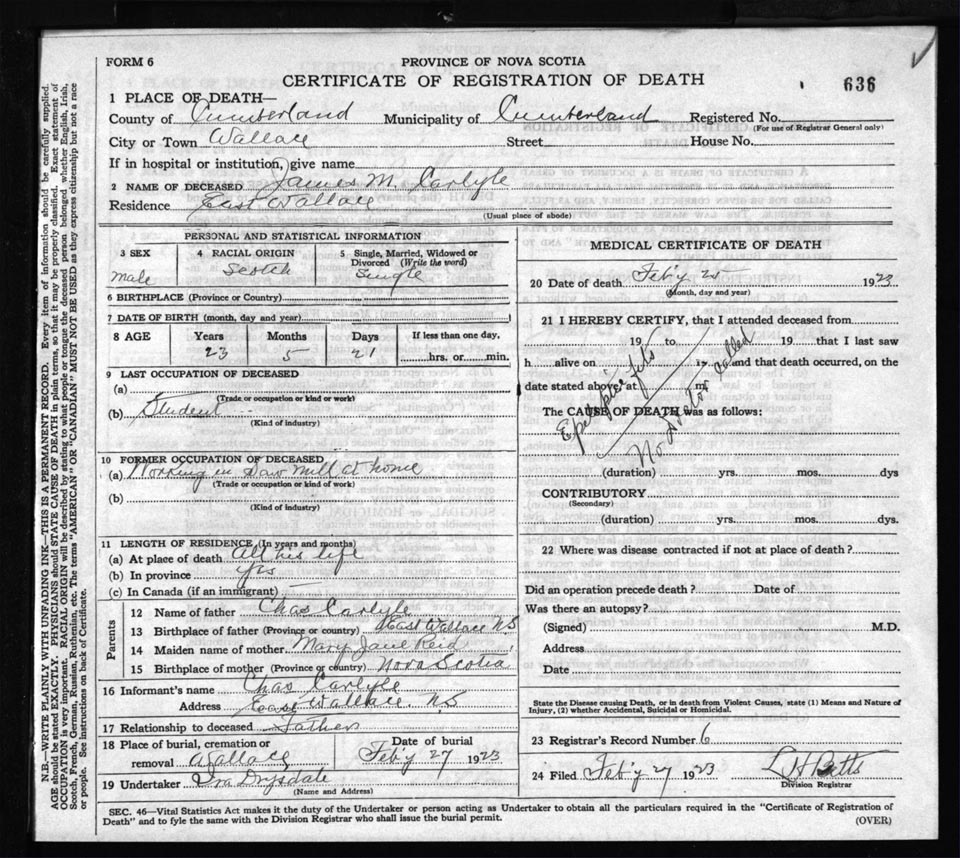 FORM 6
PROVINCE OF NOVA SCOTIA
CERTIFICATE OF REGISTRATION OF DEATH
636
1 PLACE OF DEATH—
County of Cumberland Municipality of Cumberland Registered No.
(For use of Registrar General only)
City or Town Wallace Street House No.
If in hospital or institution, give name
2 NAME OF DECEASED James M. Carlyle
Residence East Wallace
(Usual place of abode)
PERSONAL AND STATISTICAL INFORMATION
3 SEX
male
4 RACIAL ORIGIN
Scotch
5 Single, Married, Widowed or Divorced (Write the word)
Single
6 BIRTHPLACE (Province or Country)
7 DATE OF BIRTH (month, day and year)
8 AGE Years Months Days If less than one day,
23 5 21 hrs. or min.
9 LAST OCCUPATION OF DECEASED
(a)
(Trade or occupation or kind or work)
(b) Student
(Kind of industry)
10 FORMER OCCUPATION OF DECEASED
(a) Working in Saw mill at home
(Trade or occupation or kind of work)
(b)
(Kind of industry)
11 LENGTH OF RESIDENCE (In years and months)
(a) At place of death All his life
(b) In province yrs
(c) In Canada (if an immigrant)
Parents
12 Name of father Chas Carlyle
13 Birthplace of father (Province or country) East Wallace N.S
14 Maiden name of mother Mary Jane Reid
15 Birthplace of mother (Province or country) Nova Scotia
16 Informant's name Chas Carlyle
Address East Wallace. N.S
17 Relationship to deceased Father
18 Place of burial, cremation or removal Wallace
Date of burial
Feb'y 27 1923
19 Undertaker Ira Drysdale
(Name and Address)
MEDICAL CERTIFICATE OF DEATH
20 Date of death Feb'y 25 1923
(Month, day and year)
21 I HEREBY CERTIFY, that I attended deceased from
19 to 19 that I last saw
h alive on 19 and that death occurred, on the
date stated above at m.
The CAUSE OF DEATH was as follows:
Epileptic fits
No Doctor called
(duration) yrs. mos. dys
CONTRIBUTORY
(Secondary)
(duration) yrs. mos. dys.
22 Where was disease contracted if not at place of death?
Did an operation precede death? Date of
Was there an autopsy?
(Signed) M.D.
Address
Date
State the Disease causing Death, or in death from Violent Causes, state (1) Means and Nature of
Injury, (2) whether Accidental, Suicidal or Homicidal.
23 Registrar's Record Number 6
24 Filed Feb'y 27 1923 L H Betts
Division Registrar
SEC. 46—Vital Statistics Act makes it the duty of the Undertaker or person acting as Undertaker to obtain all the particulars required in the "Certificate of Registration of
Death" and to fyle the same with the Division Registrar who shall issue the burial permit.
(OVER)
N.B.—WRITE PLAINLY WITH UNFADING INK—THIS IS A PERMANENT RECORD. Every item of information should be carefully supplied.
AGE should be stated EXACTLY. PHYSICIANS should STATE CAUSE OF DEATH in plain terms, so that it may be properly classified. Exact statement of
OCCUPATION is very important. RACIAL ORIGIN will be described by stating to what people or tongue the deceased person belonged whether English, Irish,
Scotch, French, German, Russian, Ruthenian, etc. The terms "AMERICAN" OR "CANADIAN" MUST NOT BE USED as they express citizenship but not a race
or people. See instructions on back of Certificate.